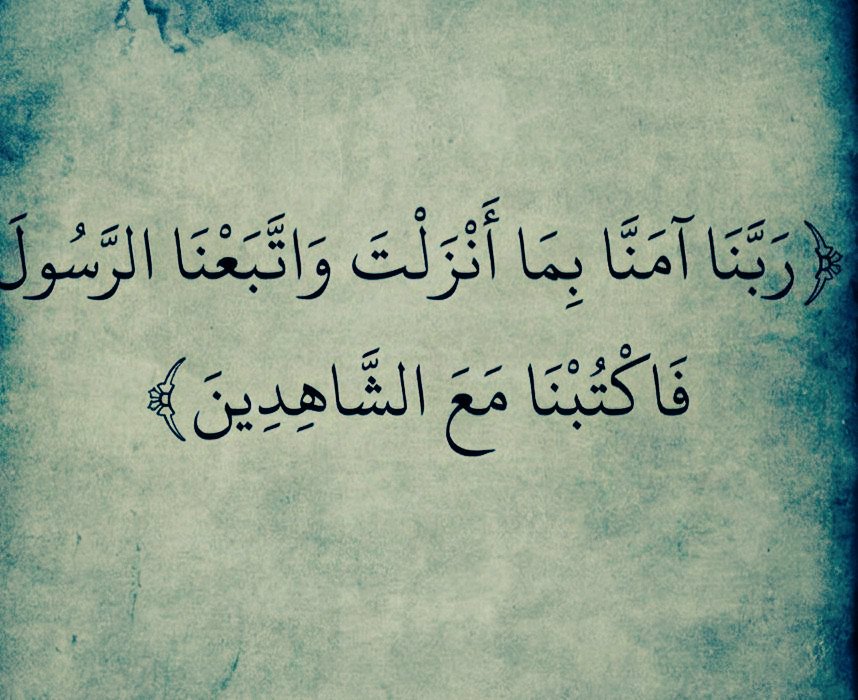 ﴿رَبَّنَا آمَنَّا بِمَا أَنْزَلْتَ وَاتَّبَعْنَا الرَّسُولَ
فَاكْتُبْنَا مَعَ الشَّاهِدِينَ﴾